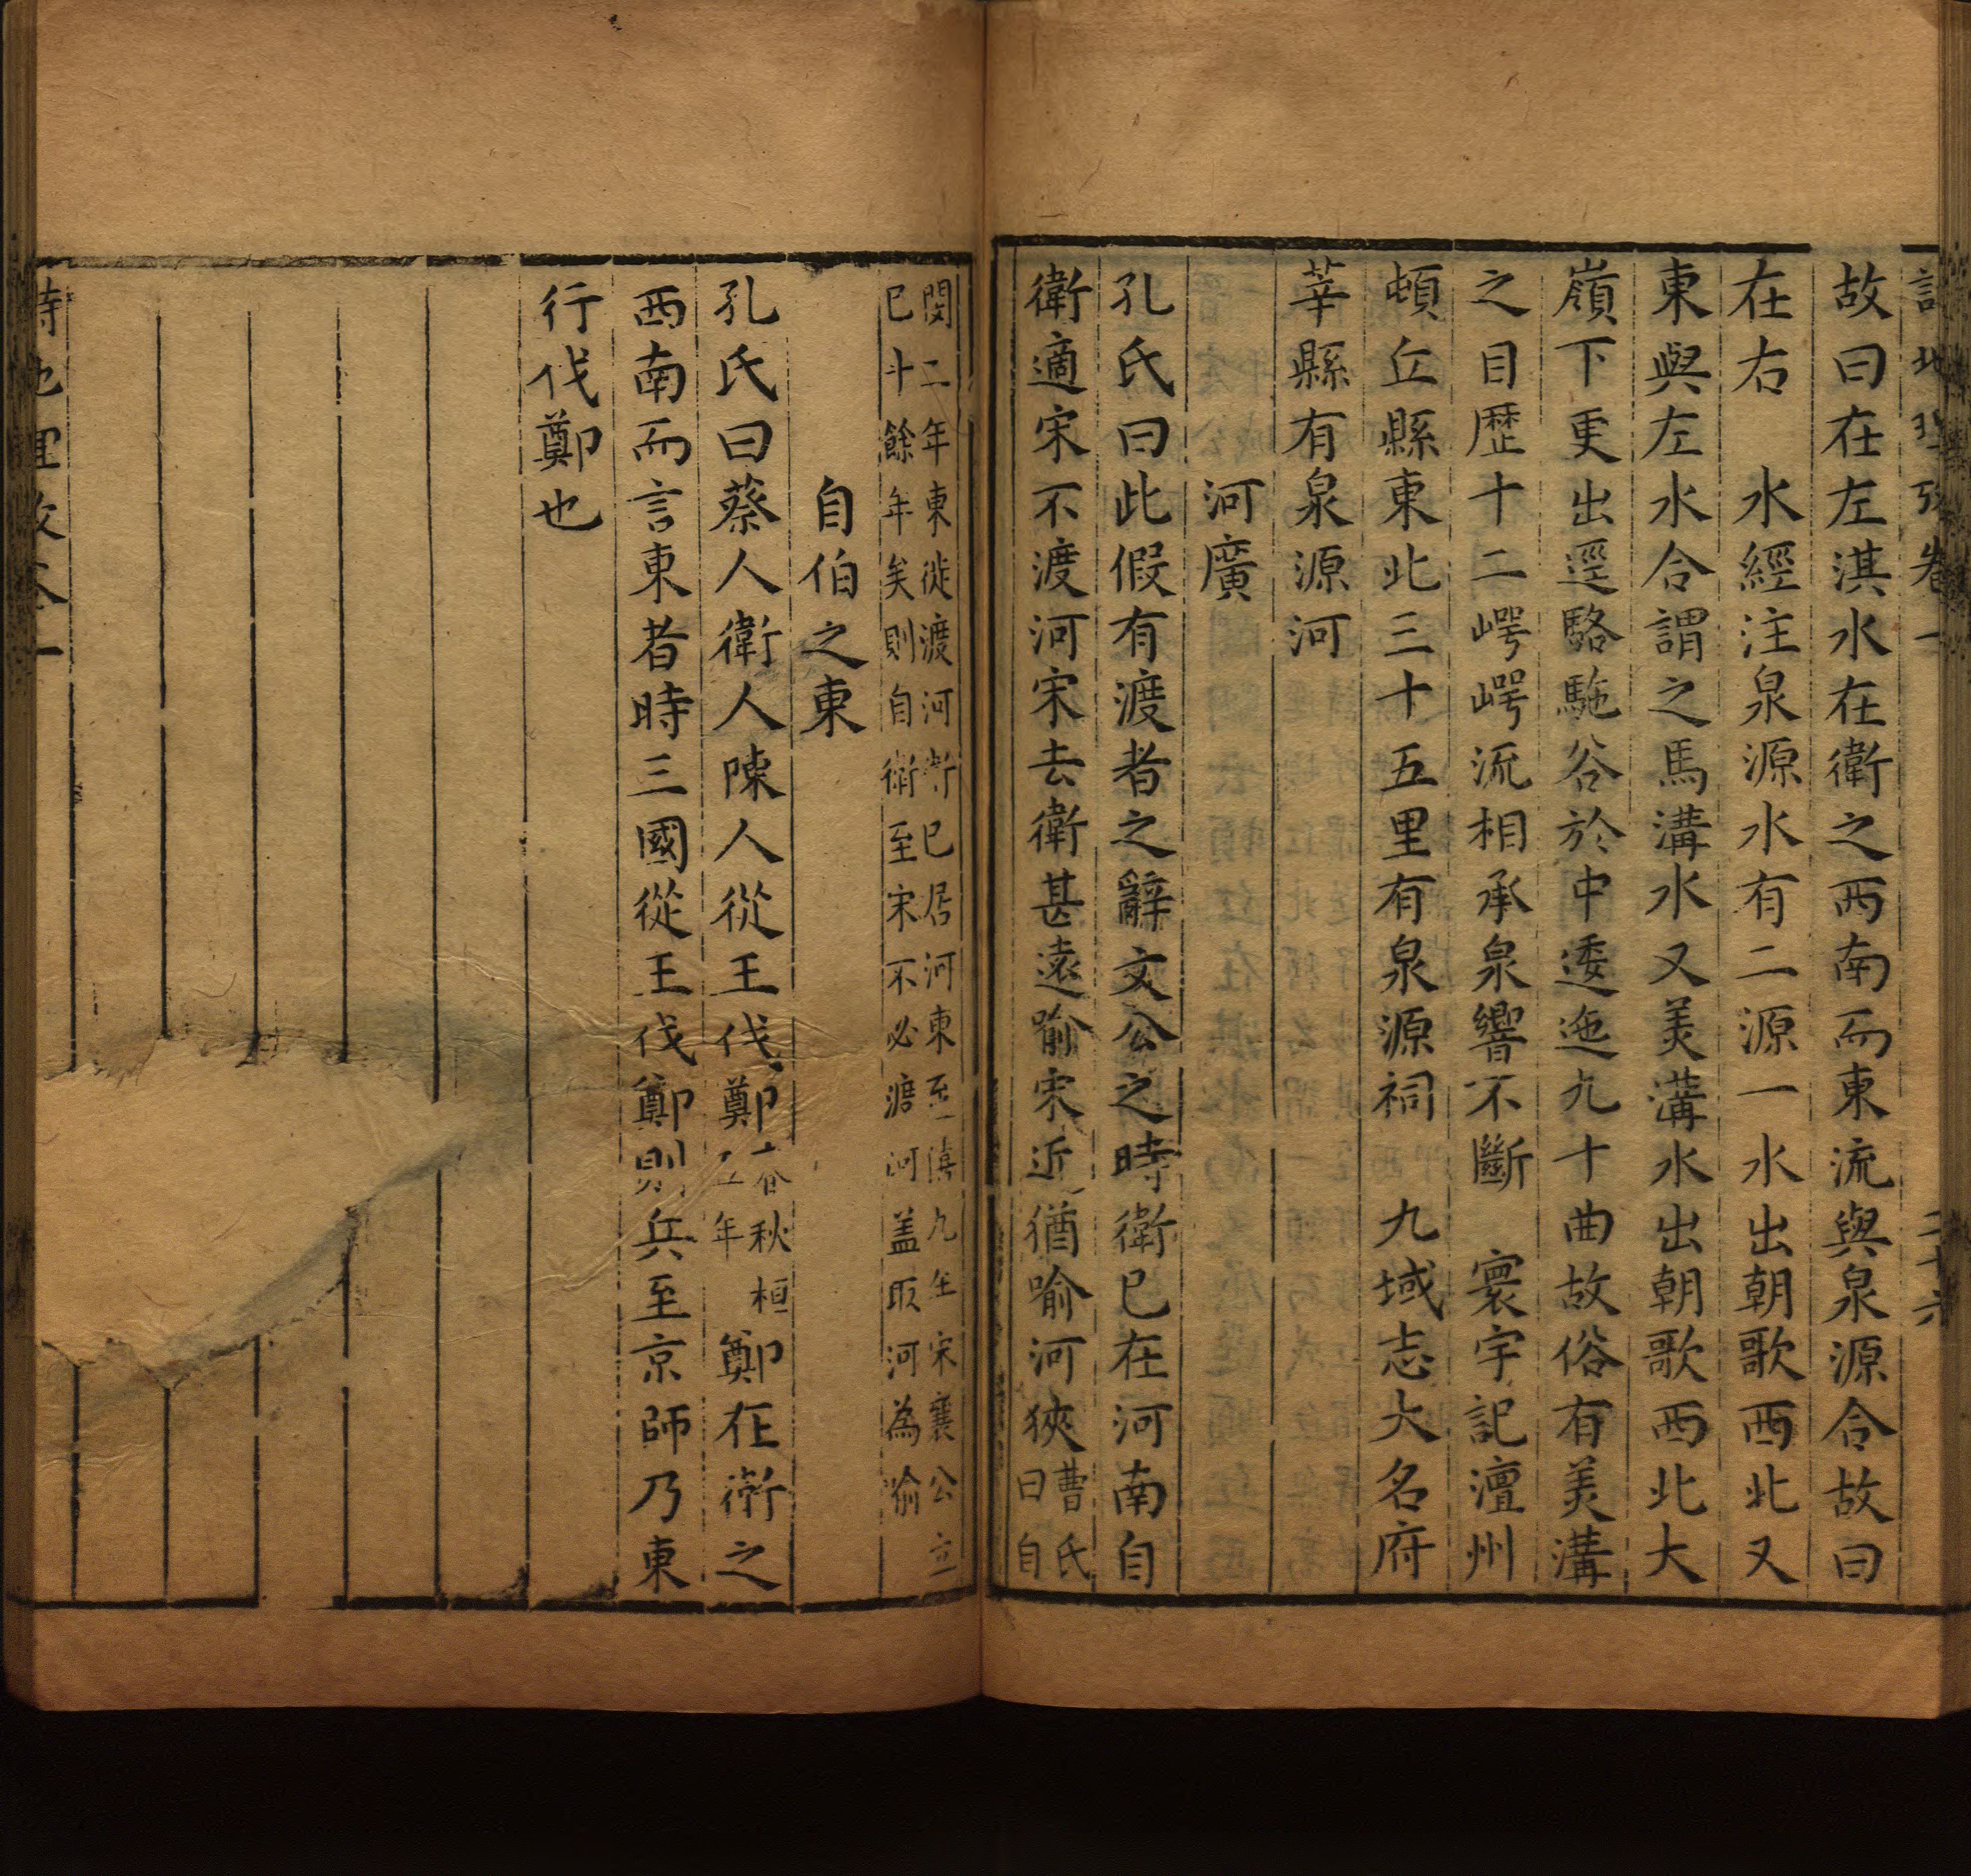 詩地理攷卷一 二十六
故曰在左淇水在衛之西南而東流與泉源合故曰
在右 水經注泉源水有二源一水出朝歌西北又
東與左水合謂之馬溝水又美溝水出朝歌西北大
嶺下更出逕駱駞谷於中逶迤九十曲故俗有美溝
之目歴十二崿崿流相承泉響不斷 寰宇記澶州
頓丘縣東北三十五里有泉源祠 九域志大名府
莘縣有泉源河
河廣
孔氏曰此假有渡者之辭文公之時衛已在河南自
衛適宋不渡河宋去衛甚遠喻宋近猶喻河狹曹氏
曰自
閔二年東徙渡河衛已居河東至僖九年宋襄公立
已十餘年矣則自衛至宋不必渡河盖取河為喻
自伯之東
孔氏曰蔡人衛人陳人從王伐鄭春秋桓
五年鄭在衛之
西南而言東者時三國從王伐鄭則兵至京師乃東
行伐鄭也
詩地理攷卷一